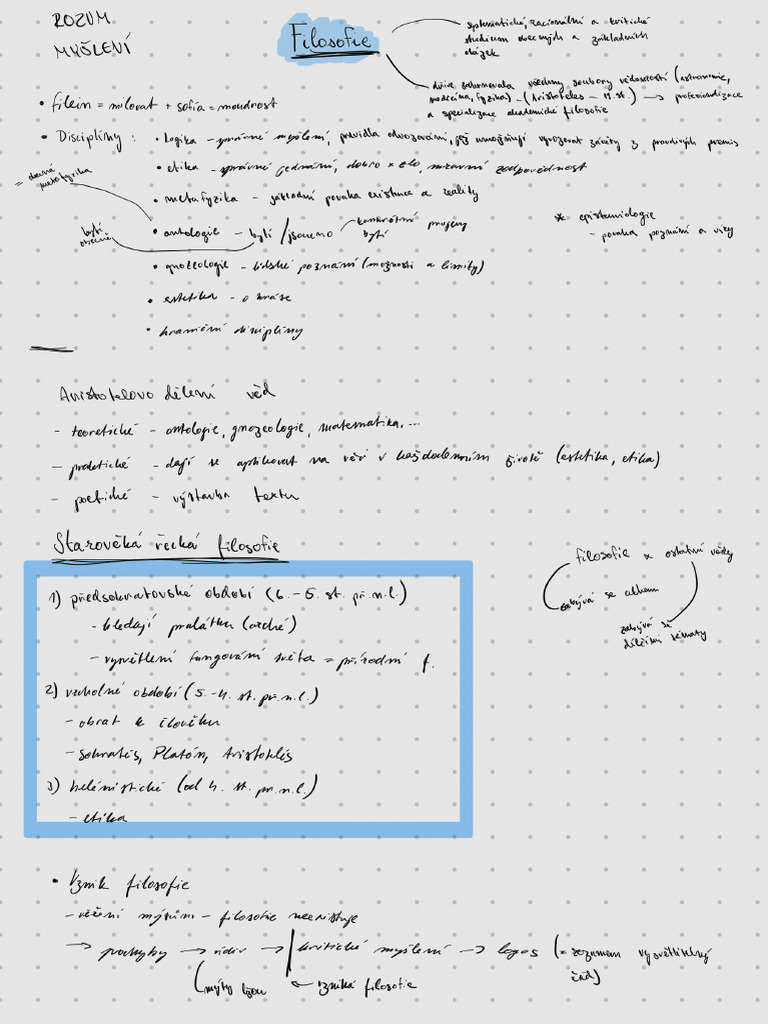 ROZUM
MYŠLENÍ
Filosofie
systematické, racionální a kritické
studium obecných a základních
otázek
dříve zahrnovala všechny soubory vědomostí (astronomie,
medicína, fyzika) - (Aristoteles – 19. st.) → profesionalizace
a specializace akademické filosofie
• filein = milovat + sofia = moudrost
• Disciplíny : • logika – správné myšlení, pravidla odvozování, jež umožňují vyvozovat závěry z pravdivých premis
• etika – správné jednání, dobro x zlo, mravní zodpovědnost
= obecná
metafyzika
• metafyzika – základní povaha existence a reality
• ontologie – bytí / jsoucno
konkrétní projevy
bytí
bytí
obecně
* epistemiologie
- povaha poznání a víry
• gnozeologie – lidské poznání (možnosti a limity)
• estetika – o kráse
• hraniční disciplíny
Aristotelovo dělení věd
– teoretické – ontologie, gnozeologie, matematika, ...
– praktické – dají se aplikovat na věci v každodenním životě (estetika, etika)
– poetické – výstavba textu
Starověká řecká filosofie
filosofie x ostatní vědy
zabývá se celkem
zabývá se
dílčími tématy
1) předsokratovské období (6. – 5. st. př. n. l.)
– hledají pralátku (arché)
– vysvětlení fungování světa = přírodní f.
2) vrcholné období (5. – 4. st. př. n. l.)
– obrat k člověku
– Sokratés, Platón, Aristotelés
3) helénistické (od 4. st. př. n. l.)
– etika
• Vznik filosofie
– věření mýtům – filosofie neexistuje
→ pochyby → údiv → | kritické myšlení → logos (= rozumem vysvětlitelný
řád)
(mýty lžou ← vzniká filosofie